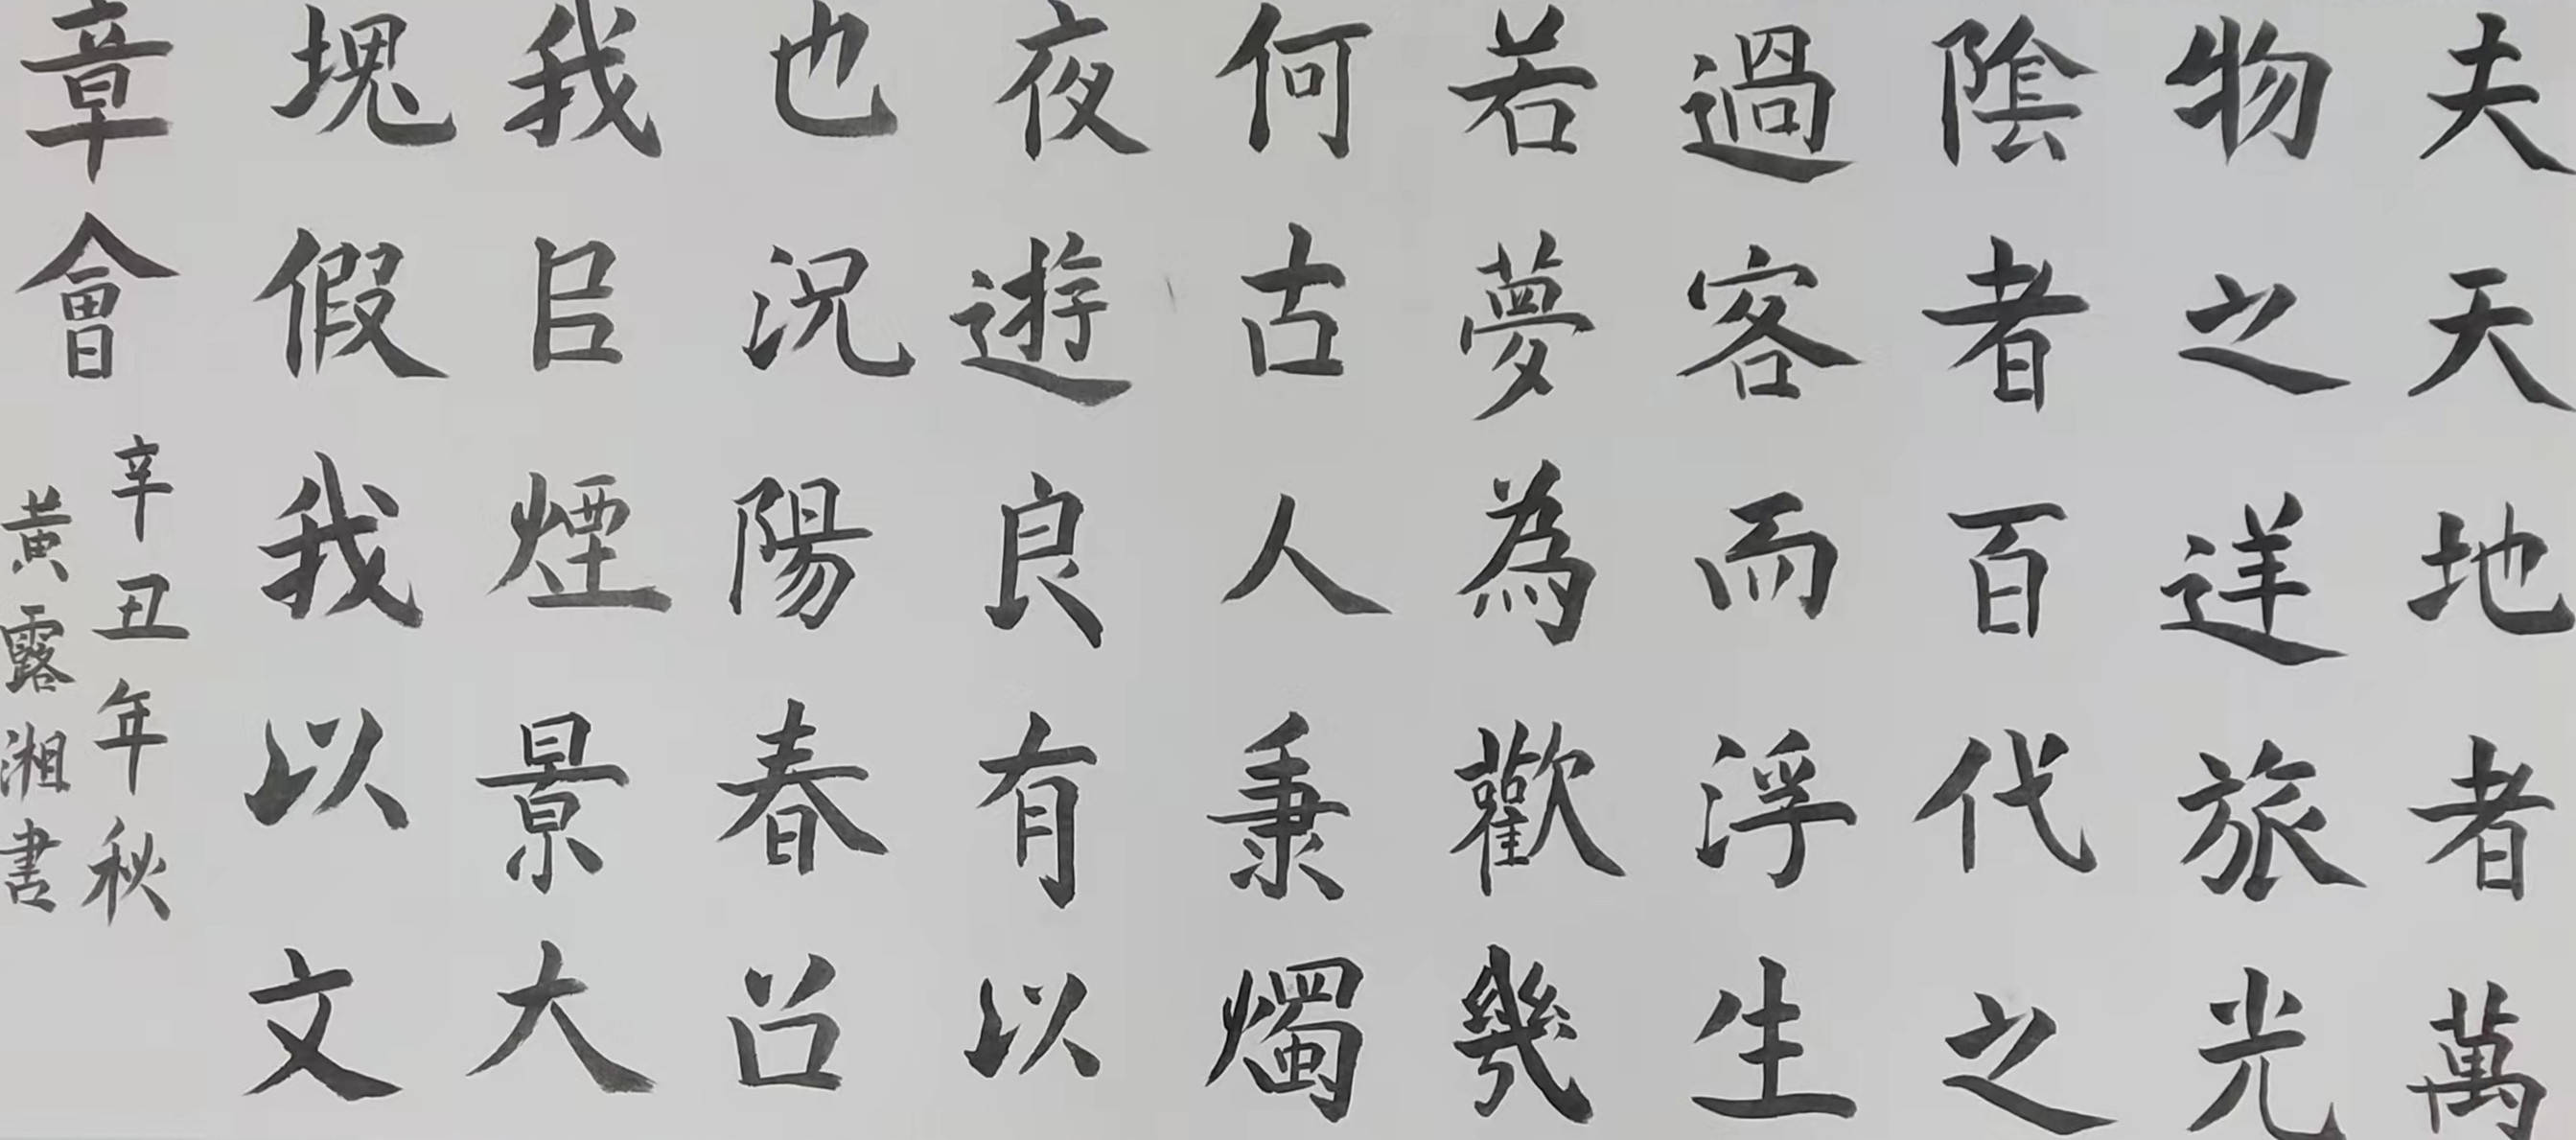 夫天地者萬
物之逆旅光
陰者百代之
過客而浮生
若夢為歡幾
何古人秉燭
夜遊良有以
也況陽春召
我㠯煙景大
塊假我以文
章會
辛丑年秋
黃露湘書